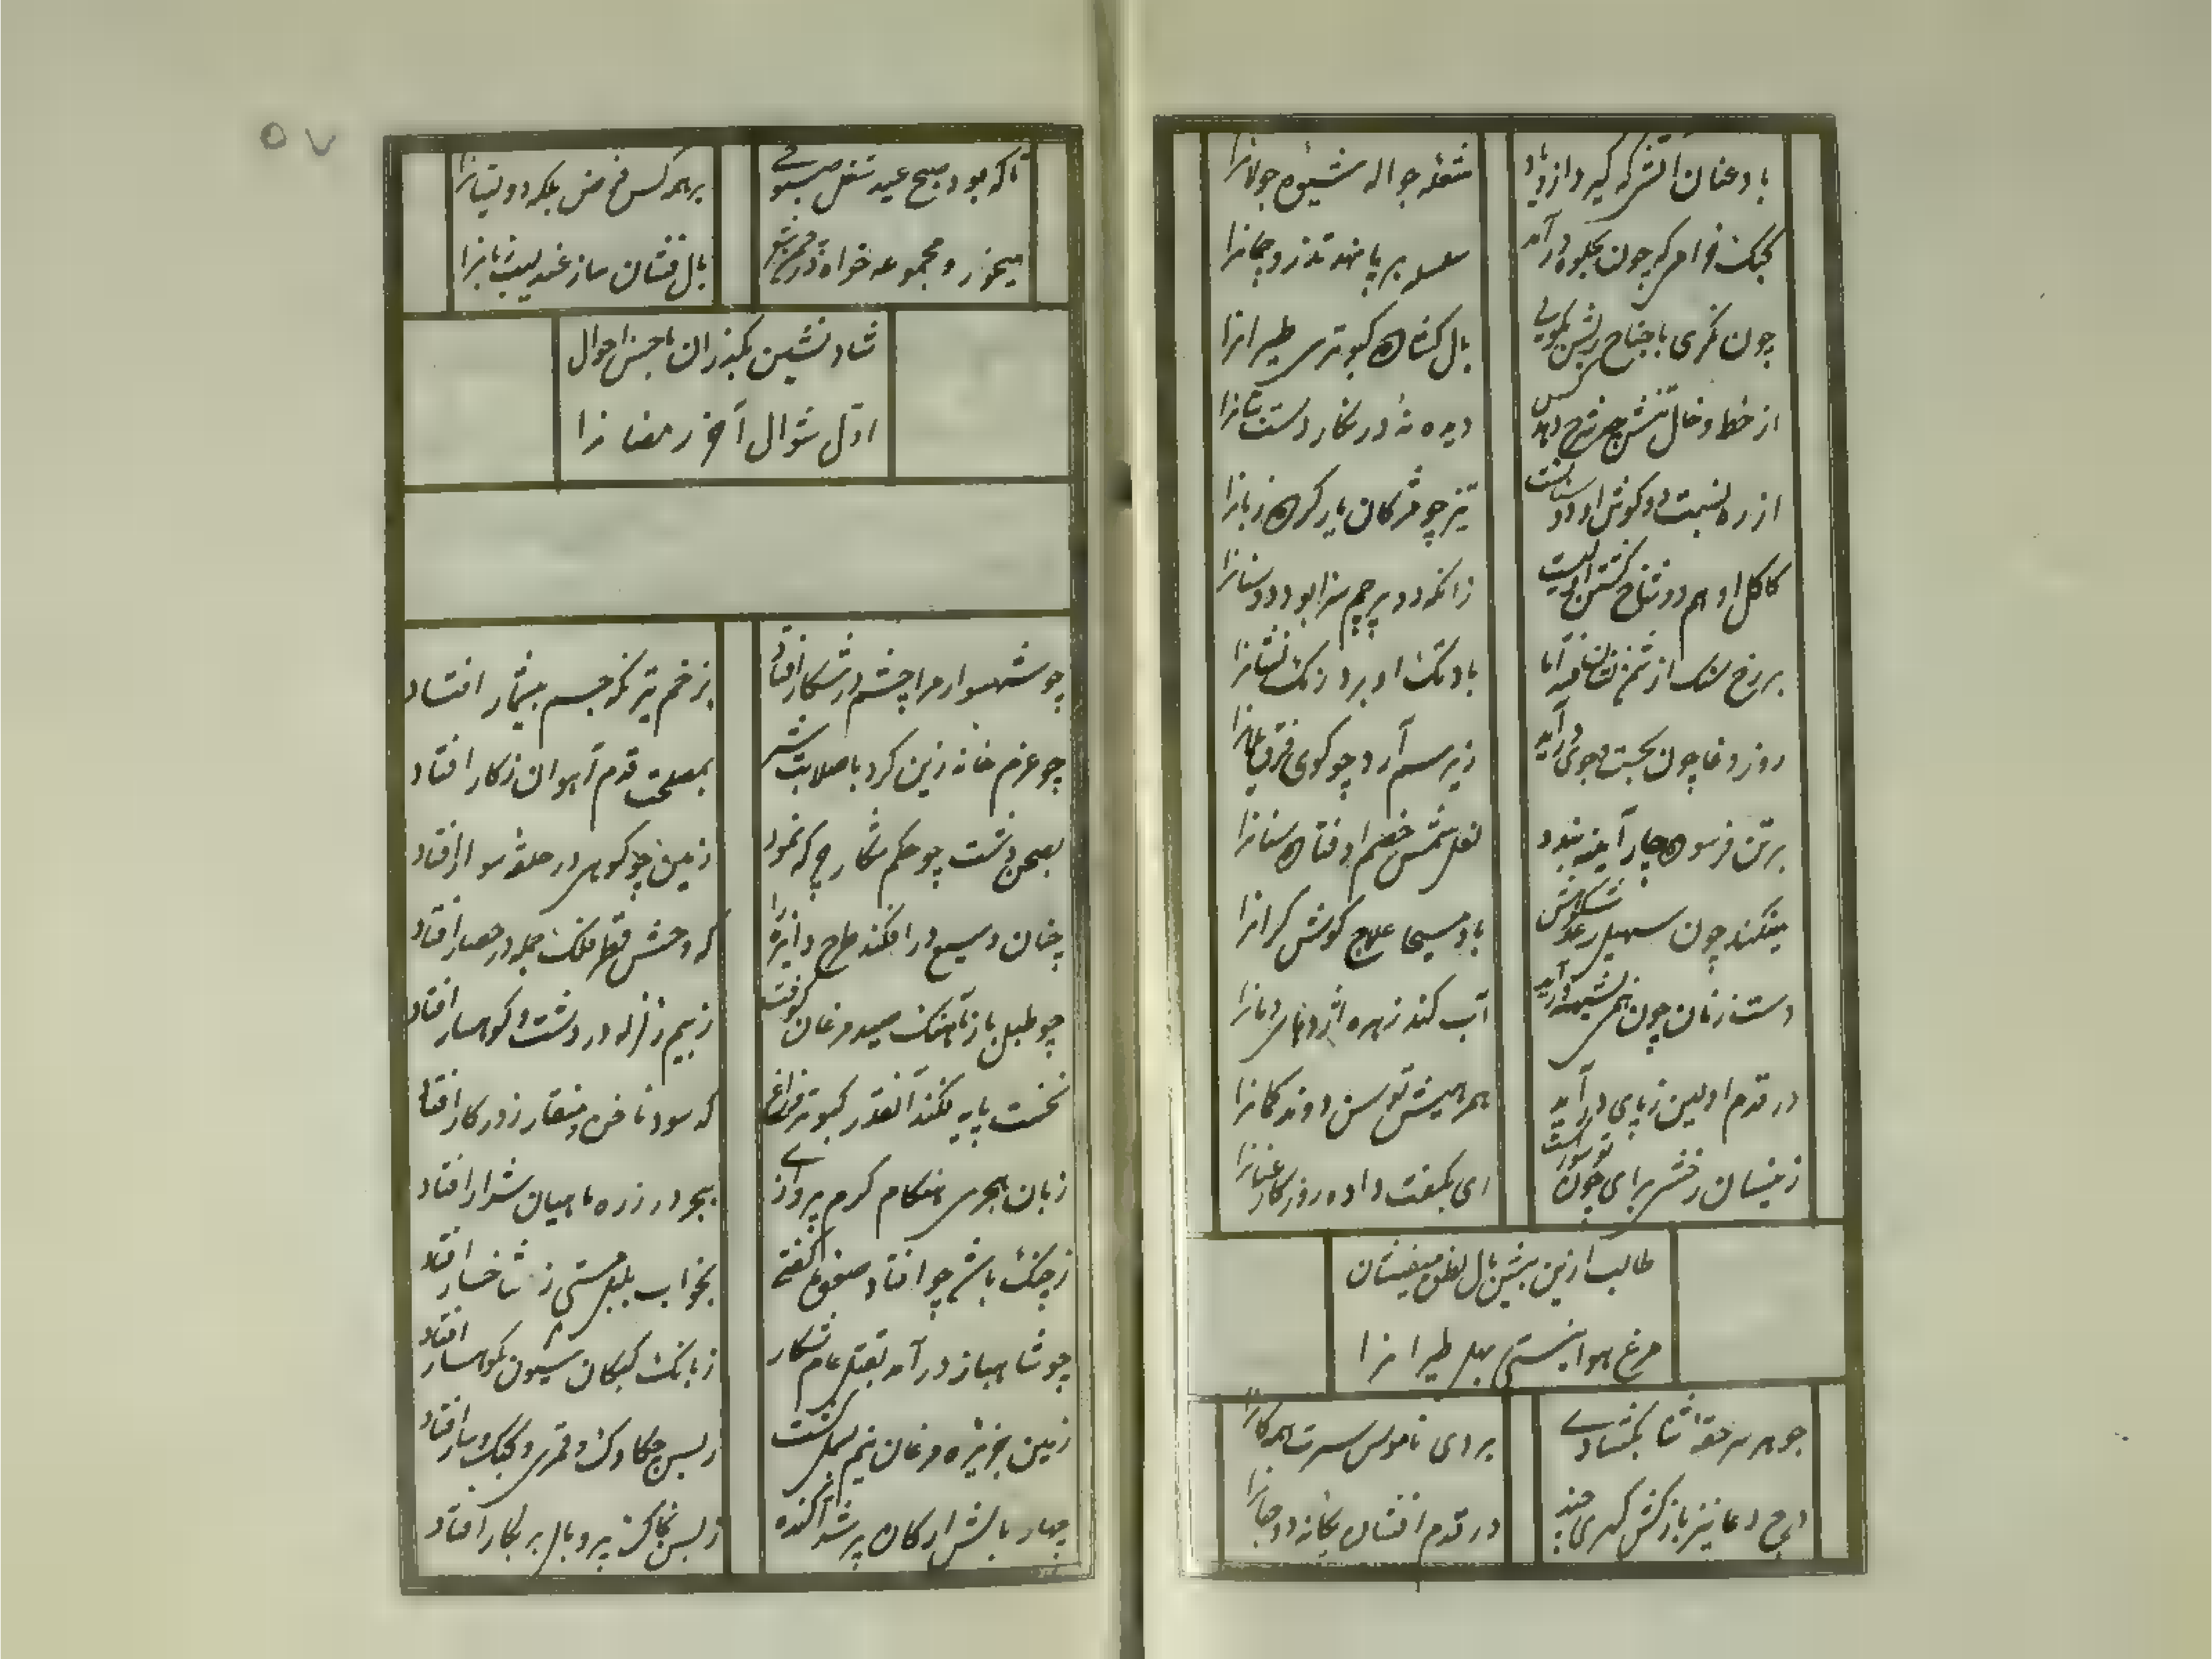 باد عنان آتشی که گیرد ازو یاد
شعله جواله شیوه جولانرا
کبک خرامی که چون بجلوه درآمد
سلسله بر پا نهد تذرو چمانرا
چون نگری با جناح زینش گویی
بال گشاده کبوتری طیرانرا
از خط و خال تنش چه شرح دهد کس
دیده نه در نگار دست بتانرا
از ره نسبت دو گوش او دو سنانست
تیز چو مژگان یار کرده زبانرا
کاکل او هم دو شاخ گشتن اولیست
زانکه دو پرچم سزا بود دو سنانرا
بر رخ سنگ از سمش نشان فتد اما
باد تک او برد ز سنگ نشانرا
روز وغا چون بجست و جوی درآید
زیر سم آرد چو گوی فرق یلانرا
بر تن فرسوده چار آینه بندد
نعل سمش خصم اوفتاده سنانرا
میکند چون سهیل رعد شکوهش
باد مسیحا علاج گوش کرانرا
دست زنان چون بحر شیهه درآید
آب کند زهره اژدهای دمانرا
در قدم اولین ز پای درآید
همرهیش توسن دونده گمانرا
زینسان رخشی برای چون تو سواریست
ای بکفت داده روزگار عنانرا
طالب ازین بیش بال نطق میفشان
مرغ هوا نیستی بهل طیرانرا
جوهر سر حقه ثنا بگشادی
بردی ناموس سرّ بحر و کانرا
درج دعا نیز بازکش گهری چند
در قدم افشان یگانه دو جهانرا
تا که بود صبح عید شغل صبوحی
بر همه کس فرض بلکه دولتیانرا
میخور و مجموعه خواه
بال فشان ساز عندلیب زبانرا
شاد نشین بگذران باحسن احوال
اول شوال آخر رمضانرا
چو شهسوار مرا چشم در شکار افتاد
ز زخم تیر نگه جسم بیشمار افتاد
چو عزم خانه زین کرد با صلابت شیر
بمصلحت قدم آهوان ز کار افتاد
بصحن دشت چو حکم شکار جرگه نمود
زمین چو گوهر در حلقه سوار افتاد
چنان وسیع درافکند طرح دایره را
که وحش قطر فلک جمله در حصار افتاد
چو طبل باز بآهنگ صید مرغان کوفت
ز بیم زلزله در دشت و کوهسار افتاد
نخست پایه فکند آنقدر کبوتر و زاغ
که سود ناخن و منقار زور کار افتاد
زبان بحری هنگام گرم پروازی
ببحر در زره ماهیان شرار افتاد
ز چنگ باشه چو افتاد صعوه گفتی
بخواب بلبل مستی ز شاخسار افتاد
چو شاهباز درآمد بقتل عام شکار
ز بانگ کبکان شیون بکوهسار افتاد
زمین جزیره مرغان نیم بسمل گشت
ز بس چکاوک و قمری و کبک و سار افتاد
چهار بالش ارکان پر شد آکنده
ز بس که پر و بال بر کنار افتاد
۵۷